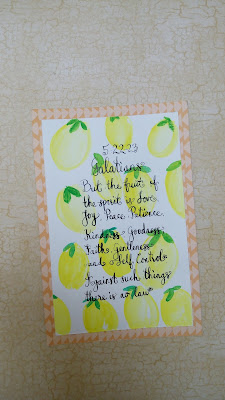 5 22 23
Galatians
But the fruit of
the spirit is Love
Joy, Peace, Patience,
Kindness Goodness,
Faith, gentleness
and Self Control
Against such things
there is no law